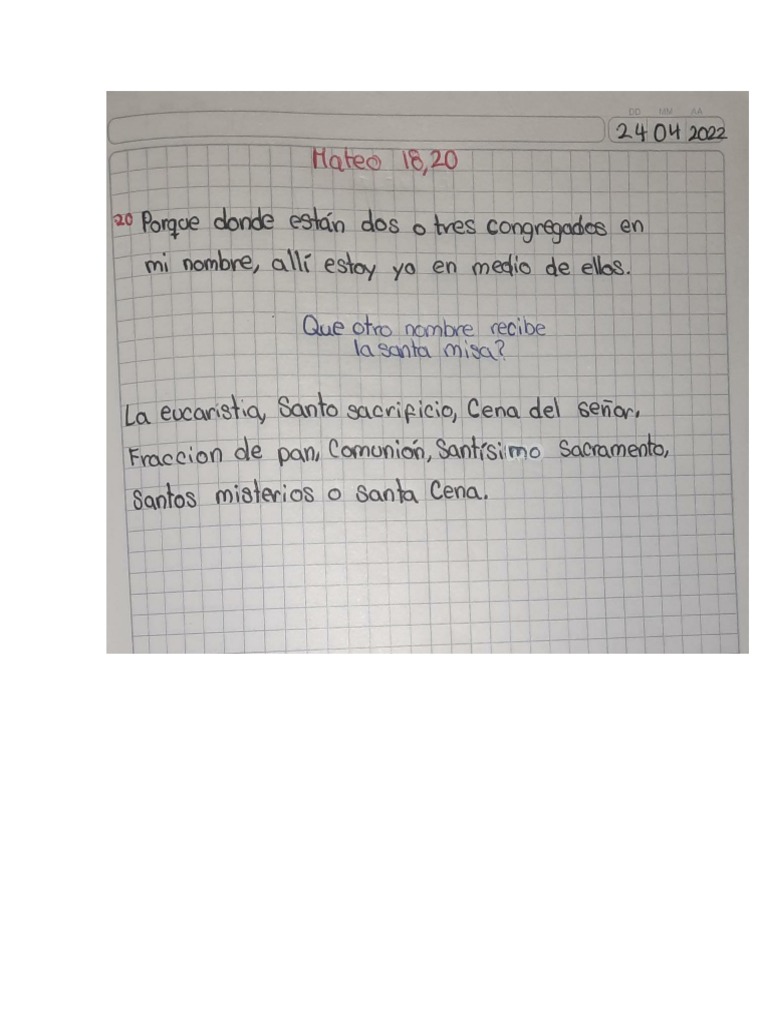 DD MM AA
24 04 2022
Mateo 18,20
20 Porque donde están dos o tres congregados en
mi nombre, allí estoy yo en medio de ellos.
Que otro nombre recibe
la santa misa?
La eucaristia, Santo sacrificio, Cena del señor,
Fraccion de pan, Comunión, Santísimo Sacramento,
Santos misterios o santa Cena.